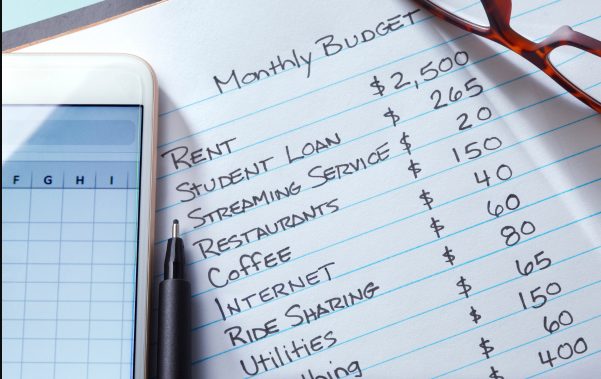 Monthly Budget
RENT $2,500
STUDENT LOAN $ 265
STREAMING SERVICE $ 20
RESTAURANTS $ 150
COFFEE $ 40
INTERNET $ 60
RIDE SHARING $ 80
UTILITIES $ 65
$ 150
$ 60
$ 400
F G H I